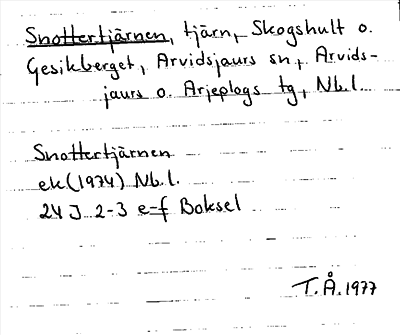 Snottertjärnen, tjärn, Skogshult o.
Gesikberget, Arvidsjaurs sn, Arvids-
jaurs o. Arjeplogs tg, Nb.l.
Snottertjärnen
ek (1974) Nb.l.
24 J 2-3 e-f Boksel
T.Å. 1977